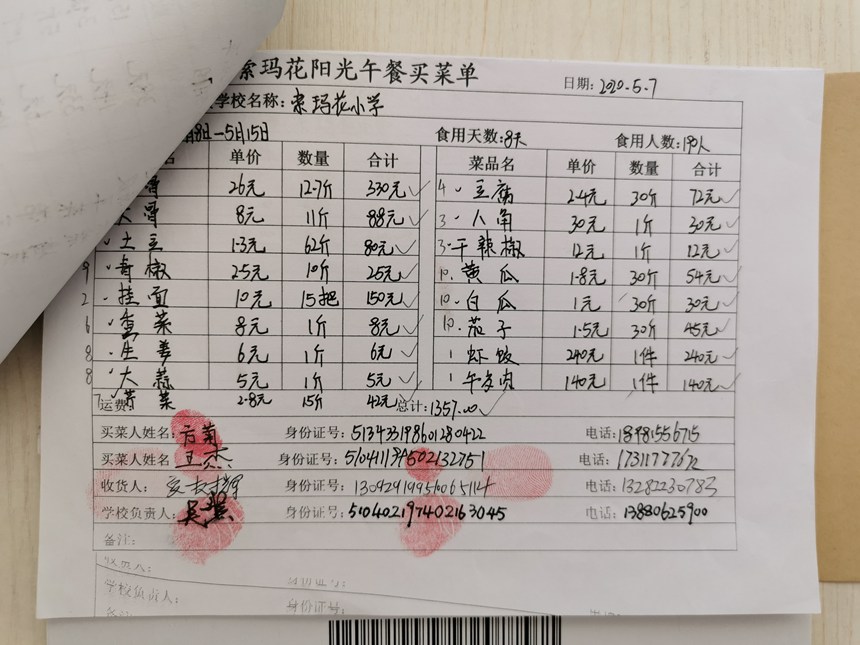 索玛花阳光午餐买菜单 日期: 2020.5.7
学校名称: 索玛花小学
8日-5月15日 食用天数: 8天 食用人数: 190人
名 单价 数量 合计 菜品名 单价 数量 合计
骨 26元 12.7斤 330元 4、豆腐 2.4元 30斤 72元
大骨 8元 11斤 88元 3、八角 30元 1斤 30元
土豆 1.3元 62斤 80元 3.干辣椒 12元 1斤 12元
9 青椒 2.5元 10斤 25元 10.黄瓜 1.8元 30斤 54元
2 挂面 10元 15把 150元 10.白瓜 1元 30斤 30元
6 菜 8元 1斤 8元 10.茄子 1.5元 30斤 45元
8 生姜 6元 1斤 6元 1 虾饺 240元 1件 240元
8 大蒜 5元 1斤 5元 1 午肉 140元 1件 140元
运费: 7 菜 2.8元 15斤 42元 总计: 1357.00
买菜人姓名: 方菊 身份证号: 513433198601280422 电话: 18981556715
买菜人姓名: 王杰 身份证号: 电话:
收货人: 身份证号: 电话: 13282230783
学校负责人: 吴 身份证号: 510402197402163045 电话: 13880625900
备注:
收货人: 身份证号:
学校负责人: 身份证号:
备注